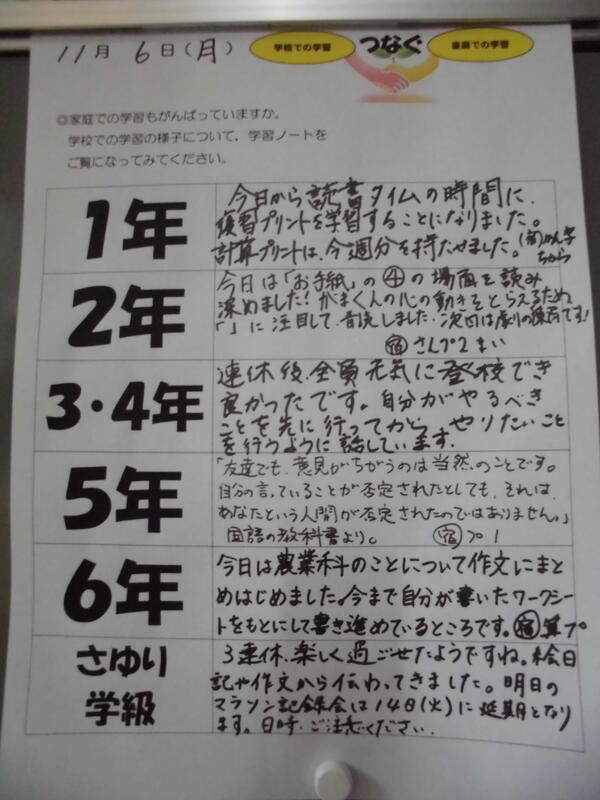 11月 6日(月)
学校での学習
つなぐ
家庭での学習
◎家庭での学習もがんばっていますか。
学校での学習の様子について、学習ノートを
ご覧になってみてください。
1年
今日から読書タイムの時間に、
復習プリントを学習することになりました。
計算プリントは、今週分を持たせました。(宿)かん字
ちから
2年
今日は「お手紙」の④の場面を読み
深めました!がまくんの心の動きをとらえるため、
「」に注目して、音読しました。次回は劇の練習です!
宿 さんプ2まい
3・4年
連休後、全員元気に登校でき
良かったです。自分がやるべき
ことを先に行ってから、やりたいこと
を行うように話しています。
5年
「友達でも、意見がちがうのは当然のことです。
自分の言っていることが否定されたとしても、それは、
あなたという人間が否定されたのではありません。」
国語の教科書より。 宿 プ1
6年
今日は農業科のことについて作文にまと
めはじめました。今まで自分が書いたワークシー
トをもとにして書き進めているところです。宿 算プ
さゆり
学級
3連休、楽しく過ごせたようですね。絵日
記や作文から伝わってきました。明日の
マラソン記録会は14日(火)に延期となり
ます。日時、ご注意ください。